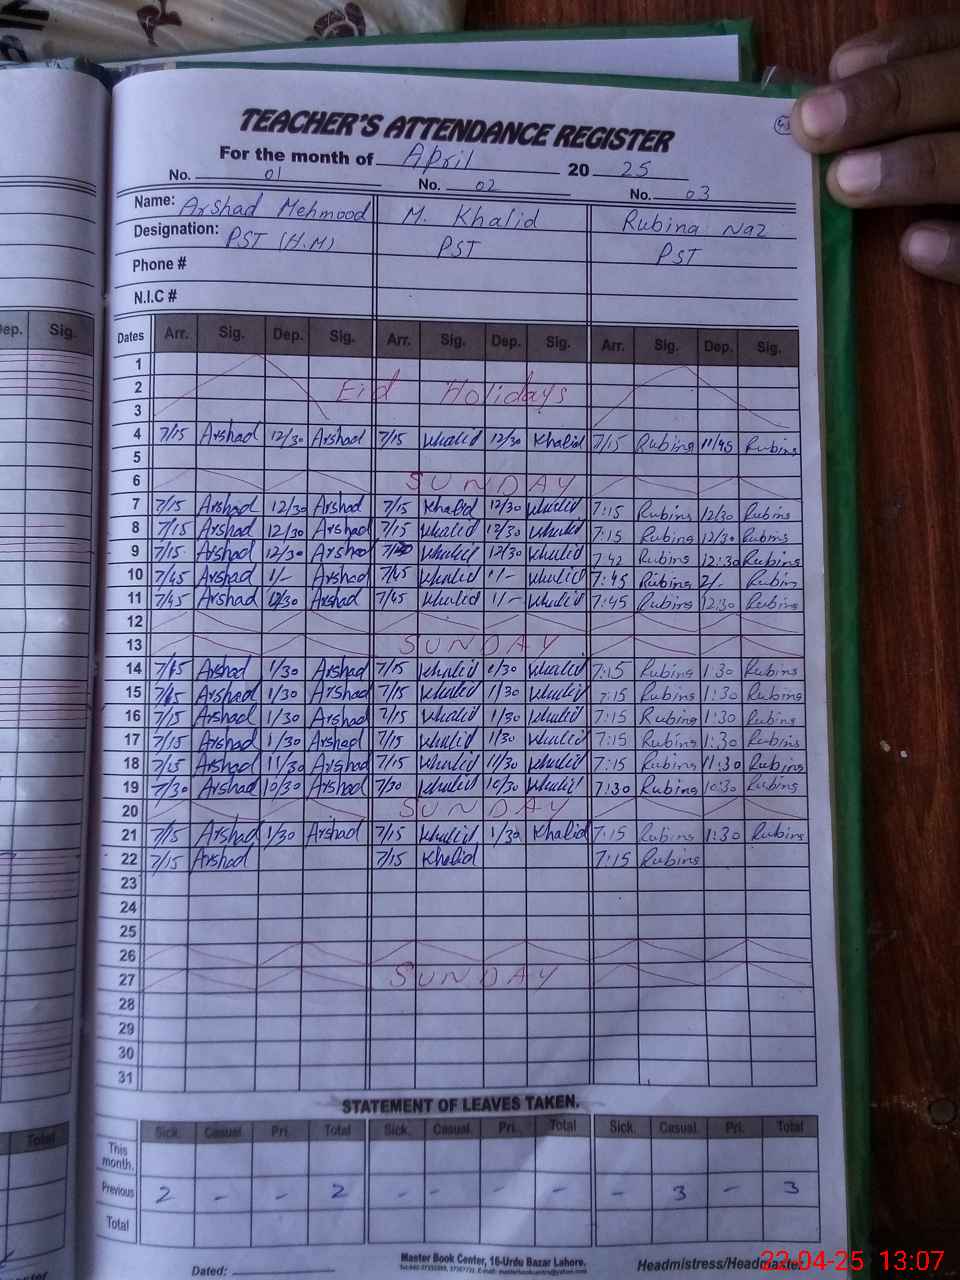 TEACHER'S ATTENDANCE REGISTER
For the month of April 20 25
No. 01 No. 02 No. 03
Name: Arshad Mehmood M. Khalid Rubina Naz
Designation: PST (H.M) PST PST
Phone #
N.I.C #
Dep. Sig.
Dates Arr. Sig. Dep. Sig. Arr. Sig. Dep. Sig. Arr. Sig. Dep. Sig.
1
2 Eid Holidays
3
4 7/15 Arshad 12/30 Arshad 7/15 Khalid 12/30 Khalid 7/15 Rubina 11/45 Rubina
5
6 SUNDAY
7 7/15 Arshad 12/30 Arshad 7/15 Khalid 12/30 Khalid 7:15 Rubina 12/30 Rubina
8 7/15 Arshad 12/30 Arshad 7/15 Khalid 12/30 Khalid 7:15 Rubina 12/30 Rubina
9 7/15 Arshad 12/30 Arshad Khalid 12/30 Khalid 7:42 Rubina 12:30 Rubina
10 7/45 Arshad 1/- Arshad 7/45 Khalid 1/- Khalid 7:45 Rubina 2/- Rubina
11 7/45 Arshad 12/30 Arshad 7/45 Khalid 1/- Khalid 7:45 Rubina 12:30 Rubina
12
13 SUNDAY
14 7/15 Arshad 1/30 Arshad 7/15 Khalid 1/30 Khalid 7:15 Rubina 1:30 Rubina
15 7/15 Arshad 1/30 Arshad 7/15 Khalid 1/30 Khalid 7:15 Rubina 1:30 Rubina
16 7/15 Arshad 1/30 Arshad 7/15 Khalid 1/30 Khalid 7:15 Rubina 1:30 Rubina
17 7/15 Arshad 1/30 Arshad 7/15 Khalid 1/30 Khalid 7:15 Rubina 1:30 Rubina
18 7/15 Arshad 11/30 Arshad 7/15 Khalid 11/30 Khalid 7:15 Rubina 11:30 Rubina
19 7/30 Arshad 10/30 Arshad 7/30 Khalid 10/30 Khalid 7:30 Rubina 10:30 Rubina
20 SUNDAY
21 7/15 Arshad 1/30 Arshad 7/15 Khalid 1/30 Khalid 7:15 Rubina 1:30 Rubina
22 7/15 Arshad 7/15 Khalid 7:15 Rubina
23
24
25
26
27 SUNDAY
28
29
30
31
STATEMENT OF LEAVES TAKEN.
Total
Sick. Casual Pri. Total Sick. Casual. Pri. Total Sick. Casual Pri. Total
This month.
Previous 2 - - 2 - - - - - 3 - 3
Total
Dated:
Master Book Center, 16-Urdu Bazar Lahore.
Headmistress/Headmaster
22-04-25 13:07